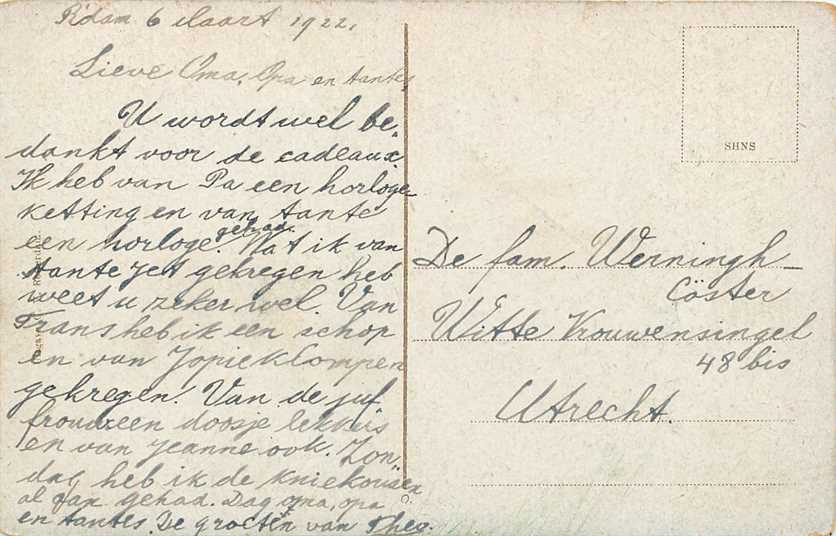 R'dam 6 Maart 1922.
Lieve Oma, Opa en tantes,
U wordt wel be-
dankt voor de cadeaux.
Ik heb van Pa een horloge-
ketting en van tante
een horloge gehad. Wat ik van
tante Jet gekregen heb
weet u zeker wel. Van
Frans heb ik een schop
en van Jopie klompen
gekregen. Van de juf
frouw een doosje lekkers
en van Jeanne ook. Zon-
dag heb ik de kniekousen
al aan gehad. Dag oma, opa
en tantes. De groeten van Theo.
SHNS
De fam. Werningh-
Cöster
Witte Vrouwensingel
48 bis
Utrecht.